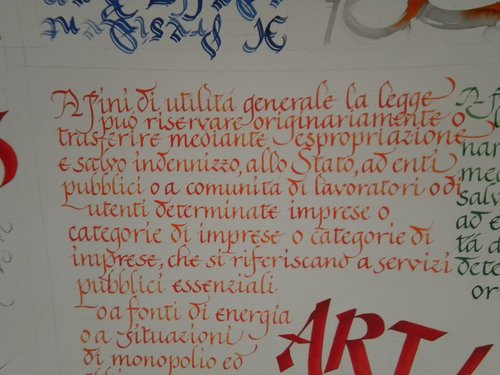 A fini di utilitá generale la legge
puó riservare originariamente o
trasferire mediante espropriazione
e salvo indennizzo, allo Stato, ad enti
pubblici o a comunitá di lavoratori o di
utenti determinate imprese o
categorie di imprese o categorie di
imprese, che si riferiscano a servizi
pubblici essenziali
o a fonti di energia
o a situazioni
di monopolio ed
ART
A f
nar
med
salv
ad e
tá d
dete
or